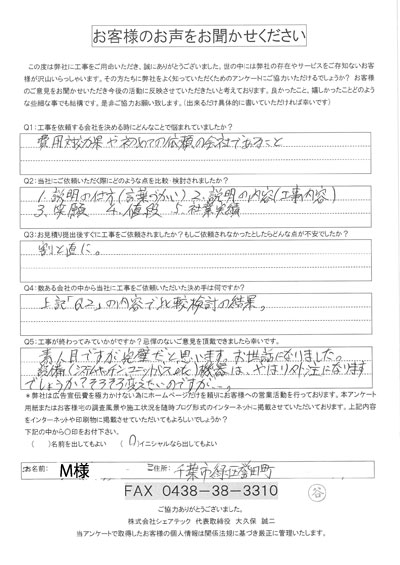 お客様のお声をお聞かせください
この度は弊社に工事をご用命いただき、誠にありがとうございました。世の中には弊社の存在やサービスをご存知ないお客
様が沢山いらっしゃいます。その方たちに弊社をよく知っていただくためのアンケートにご協力いただけるでしょうか？お客様
のご意見をお聞かせいただき今後の活動に反映させていただきたいと考えております。良かったこと、嬉しかったことどのよう
な些細な事でも結構です。是非ご協力お願い致します。（出来るだけ具体的に書いていただければ幸いです）
Q1：工事を依頼する会社を決める時にどんなことで悩まれていましたか？
費用対効果や初めての依頼の会社であること
Q2：当社にご依頼いただく際にどのような点を比較・検討されましたか？
1. 説明の仕方(言葉づかい) 2. 説明の内容(工事内容)
3. 笑顔 4. 値段 5. 社業実績
Q3：お見積り提出後すぐに工事をご依頼されましたか？もしご依頼されなかったとしたらどんな点が不安でしたか？
割と直に。
Q4：数ある会社の中から当社に工事をご依頼いただいた決め手は何ですか？
上記「Q2」の内容で比較検討の結果。
Q5：工事が終わってみていかがですか？忌憚のないご意見を頂戴できましたら幸いです。
素人目ですが完璧だと思います。お世話になりました。
設備(システムキッチン、ユニットバスetc)機器は、やはり外注になります
でしょうか？そろそろ変えたいのですが…。
＊弊社は広告宣伝費を極力かけない為にホームページだけを頼りにお客様への営業活動を行っております。本アンケート
用紙またはお客様宅の調査風景や施工状況を随時ブログ形式のインターネットに掲載させていただいております。上記内容
をインターネットや印刷物に掲載させていただいてもよろしいでしょうか？
下記の中から〇印をお付下さい。
（　）名前を出してもよい　（〇）イニシャルなら出してもよい
お名前： M様 ご住所： 千葉市緑区誉田町
FAX 0438-38-3310
ご協力ありがとうございました。
株式会社シェアテック 代表取締役 大久保 誠二
当アンケートで取得したお客様の個人情報は関係法規に基づき厳正に管理いたします。